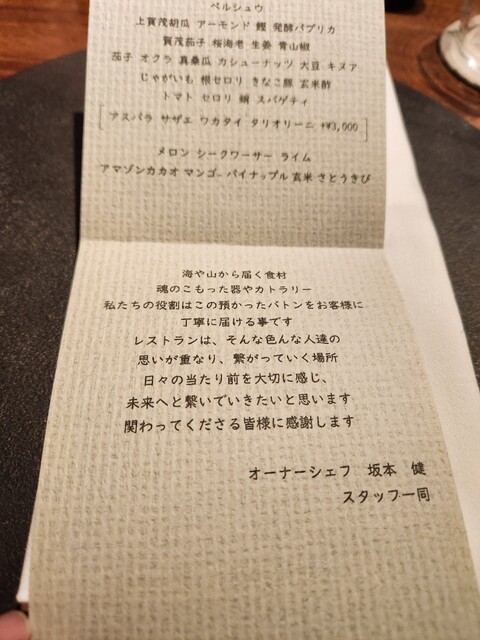 ペルシュウ
上賀茂胡瓜 アーモンド 鰹 発酵パプリカ
賀茂茄子 桜海老 生姜 青山椒
茄子 オクラ 真桑瓜 カシューナッツ 大豆 キヌア
じゃがいも 根セロリ きなこ豚 玄米酢
トマト セロリ 鮪 スパゲティ
[アスパラ サザエ ワカタイ タリオリーニ +¥3,000]
メロン シークワーサー ライム
アマゾンカカオ マンゴー パイナップル 玄米 さとうきび
海や山から届く食材
魂のこもった器やカトラリー
私たちの役割はこの預かったバトンをお客様に
丁寧に届ける事です
レストランは、そんな色んな人達の
思いが重なり、繋がっていく場所
日々の当たり前を大切に感じ、
未来へと繋いでいきたいと思います
関わってくださる皆様に感謝します
オーナーシェフ 坂本 健
スタッフ一同